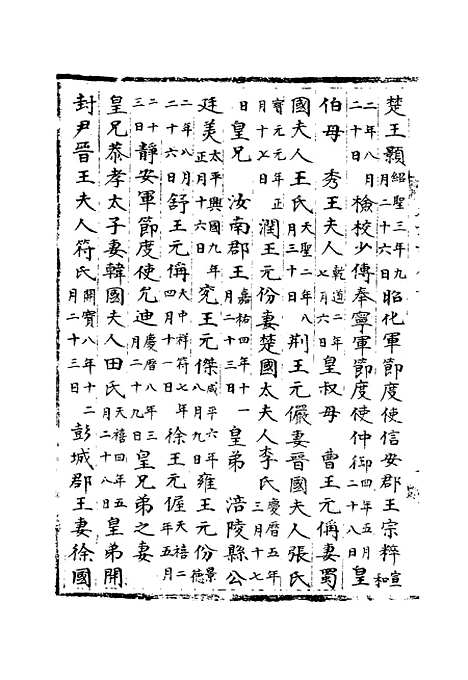 楚王顥紹聖三年九月二十六日昭化軍節度使信安郡王宗粹宣和
二年八月二十日檢校少傅奉寧軍節度使仲御四年五月二十八日皇
伯母 秀王夫人乾道二年七月六日皇叔母 曹王元偁妻蜀
國夫人王氏天聖二年八月三十日荆王元儼妻晉國夫人張氏
寳元元年正月十七日潤王元份妻楚國太夫人李氏慶曆五年三月十七
日皇兄 汝南郡王嘉祐四年十一月二十三日皇弟 涪陵縣公
廷美太平興國九年正月十六日兖王元傑咸平六年八月雍王元份景德
二年八月二十六日舒王元偁大中祥符七年四月十一日徐王元偓天禧二年五月
二十三日靜安軍節度使允迪慶曆八年三月二十九日皇兄弟之妻
皇兄恭孝太子妻韓國夫人田氏天禧四年五月二十八日皇弟開
封尹晉王夫人符氏開寳八年十二月二十三日彭城郡王妻徐國